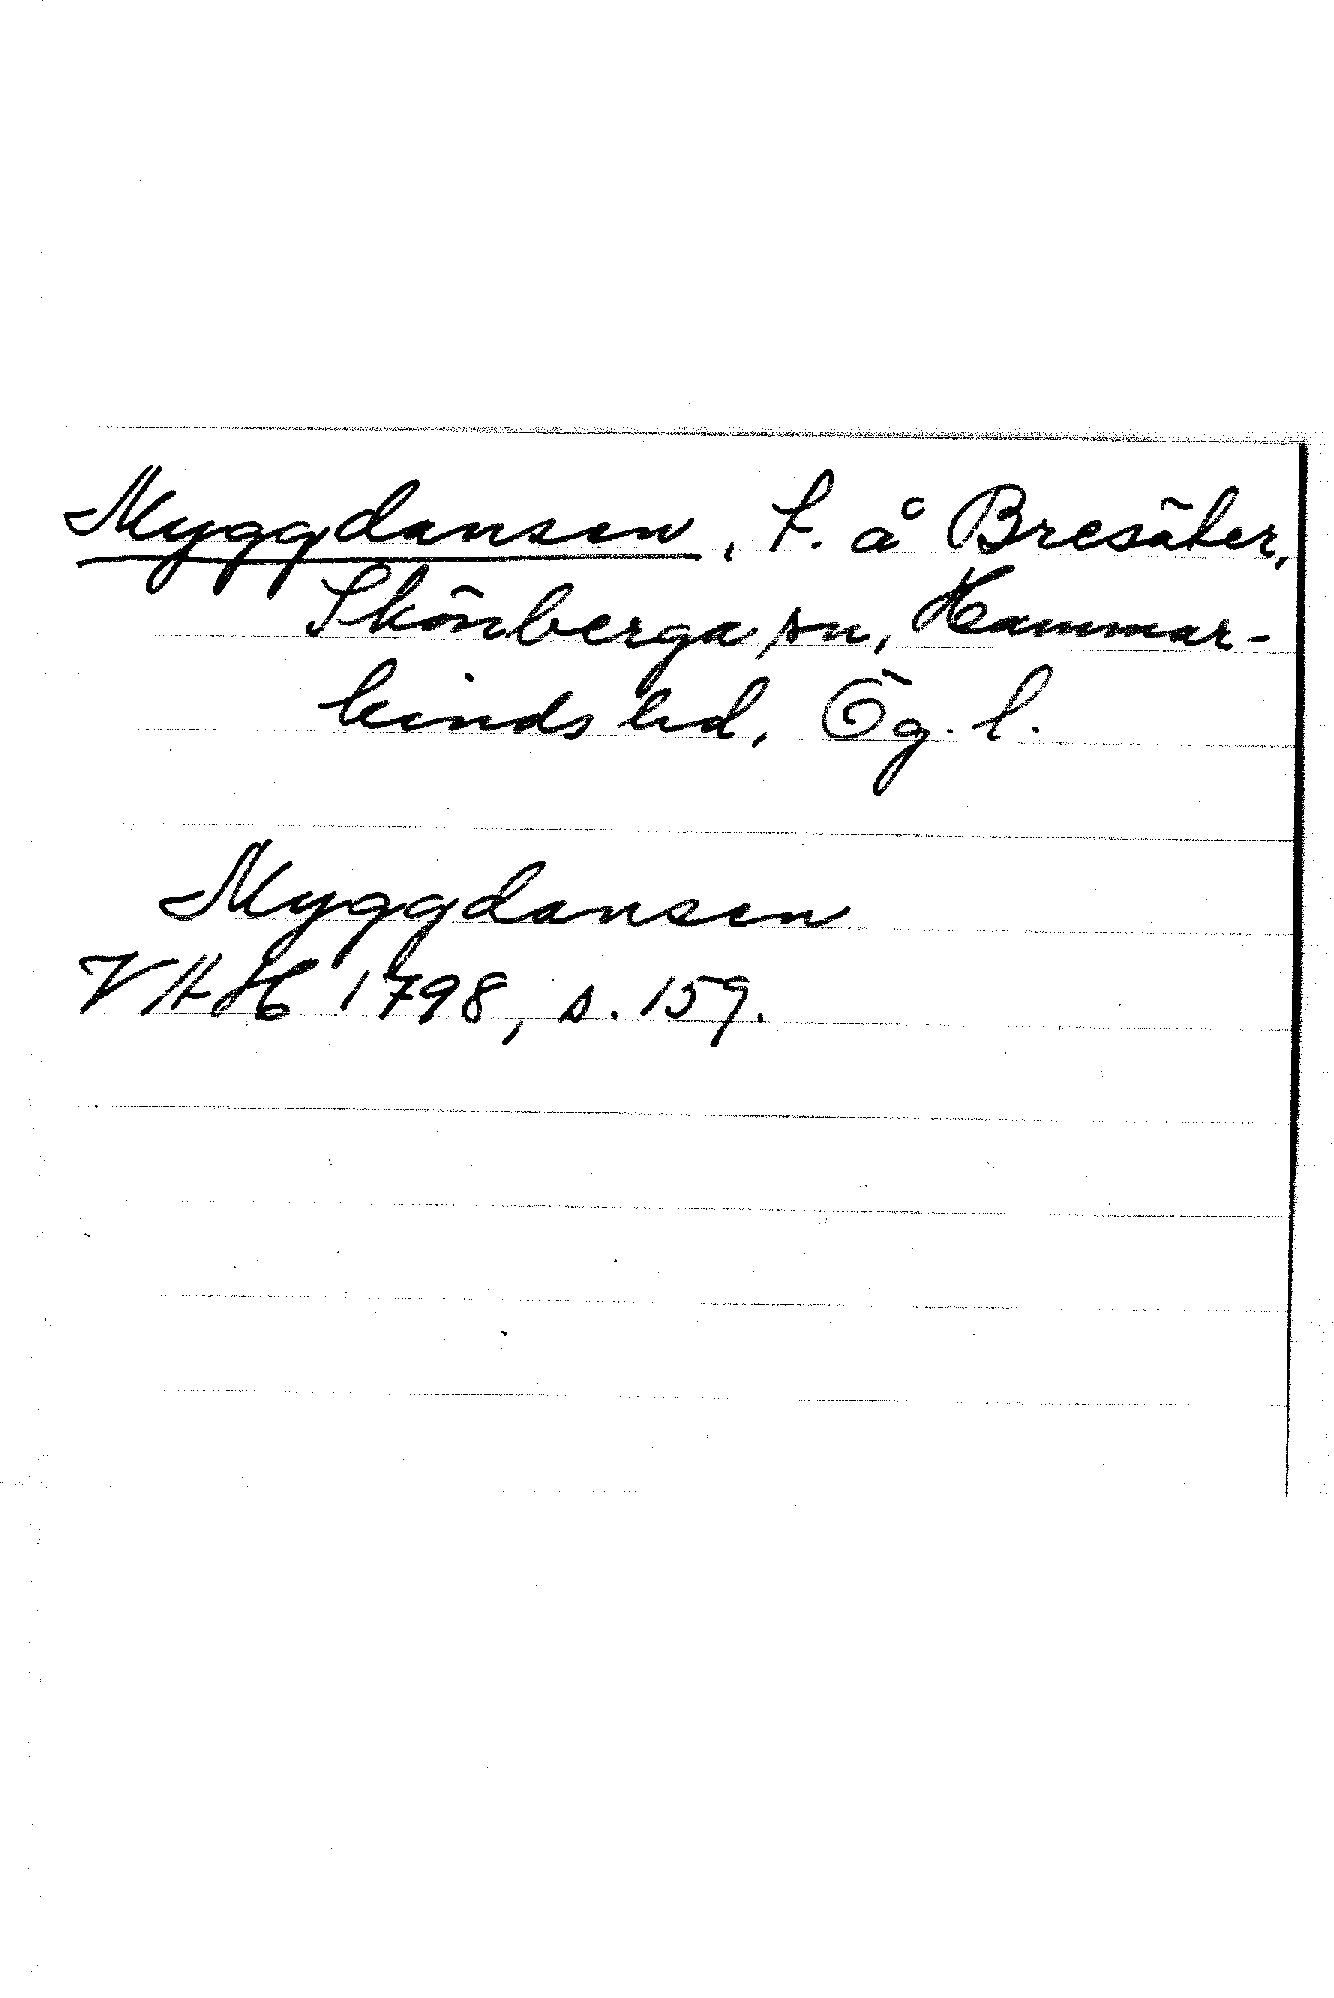 Myggdansen, t. å Bresäter,
Skönberga sn, Hammar-
kinds hd, Ög. l.
Myggdansen
VHH 1798, s. 159.